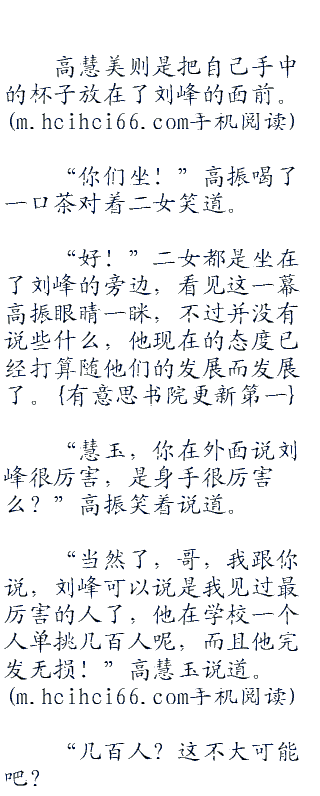 高慧美则是把自己手中
的杯子放在了刘峰的面前。
(m.hcihci66.com手机阅读)
“你们坐！”高振喝了
一口茶对着二女笑道。
“好！”二女都是坐在
了刘峰的旁边，看见这一幕
高振眼睛一眯，不过并没有
说些什么，他现在的态度已
经打算随他们的发展而发展
了。{有意思书院更新第一}
“慧玉，你在外面说刘
峰很厉害，是身手很厉害
么？”高振笑着说道。
“当然了，哥，我跟你
说，刘峰可以说是我见过最
厉害的人了，他在学校一个
人单挑几百人呢，而且他完
发无损！”高慧玉说道。
(m.hcihci66.com手机阅读)
“几百人？这不大可能
吧？